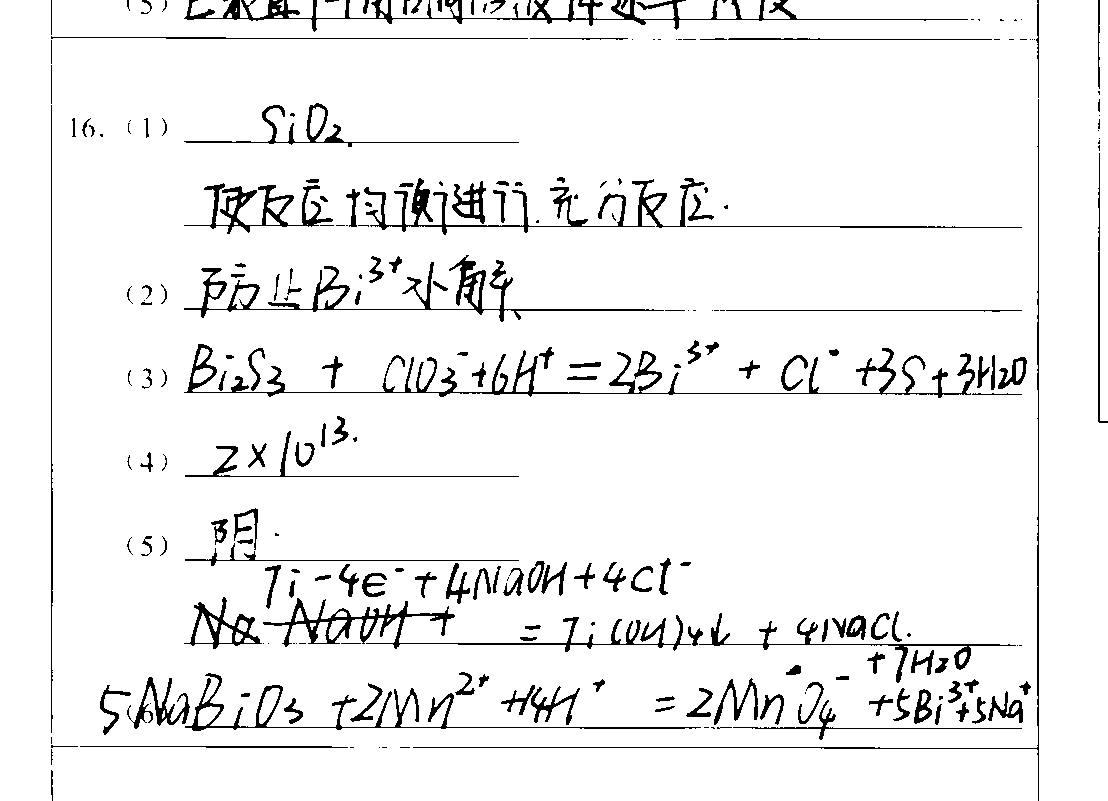 (5)
16. (1) SiO₂.
使反应均衡进行.充分反应.
(2) 防止Bi³⁺水解、
(3) Bi₂S₃ + ClO₃⁻+6H⁺ = 2Bi³⁺ + Cl⁻ +3S+3H₂O
(4) 2×10¹³.
(5) 阴.
Ti-4e⁻+4NaOH+4Cl⁻
= Ti(OH)₄↓ + 4NaCl.
+7H₂O
5NaBiO₃ +2Mn²⁺ +14H⁺ = 2MnO₄⁻ +5Bi³⁺+5Na⁺